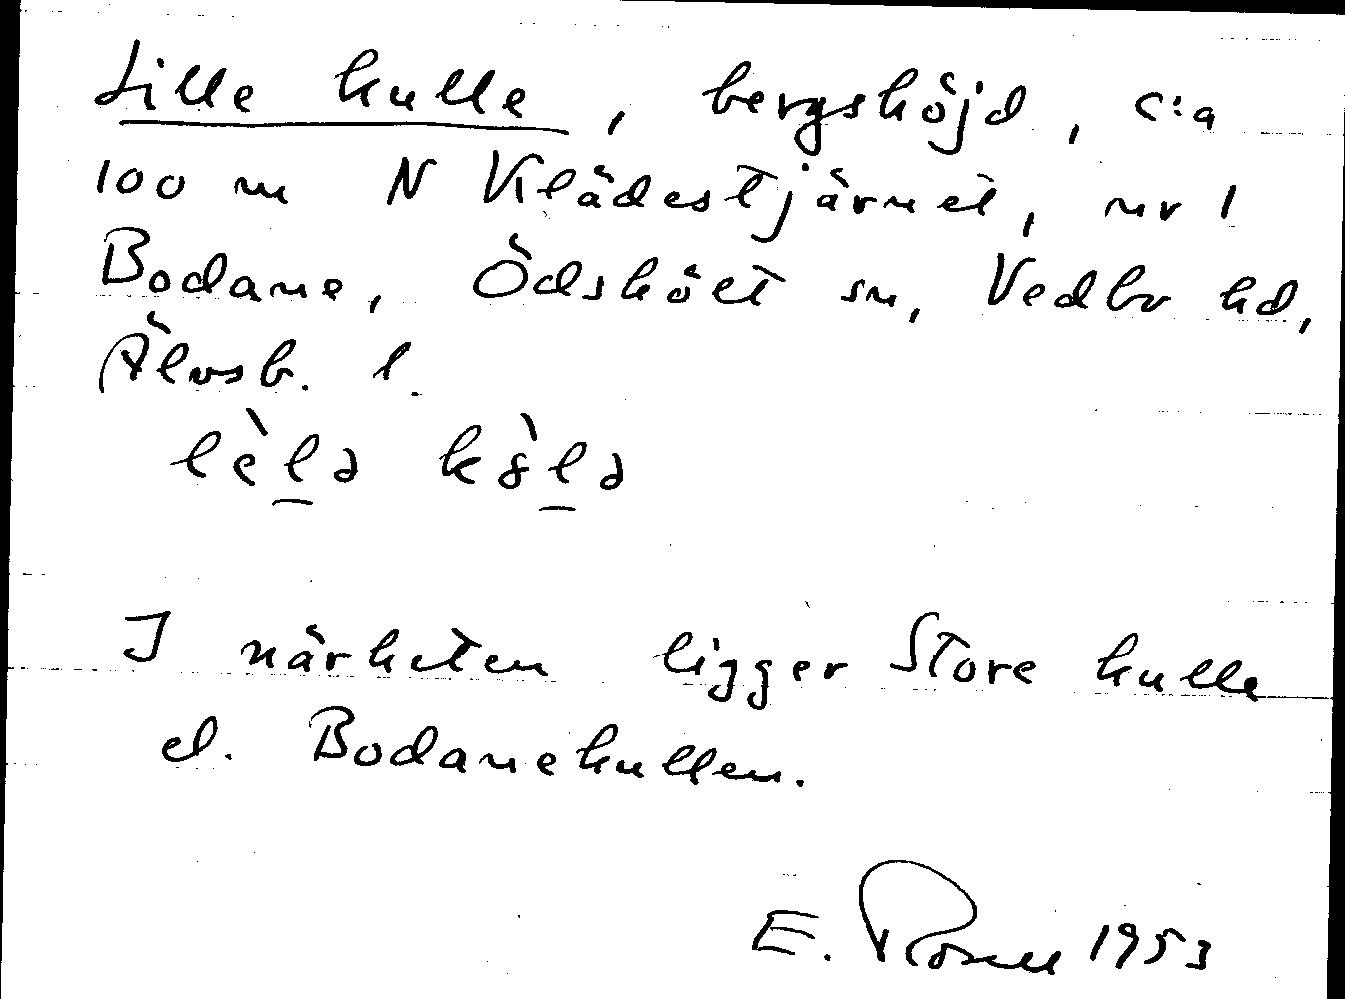 Lille kulle, bergshöjd, c:a
100 m N Klädestjärnet, nr 1
Bodane, Ödskölt sn, Vedbo hd,
Älvsb. l.
lèlə kòlə
I närheten ligger Store kulle
el. Bodanekullen.
E. Rosell 1953